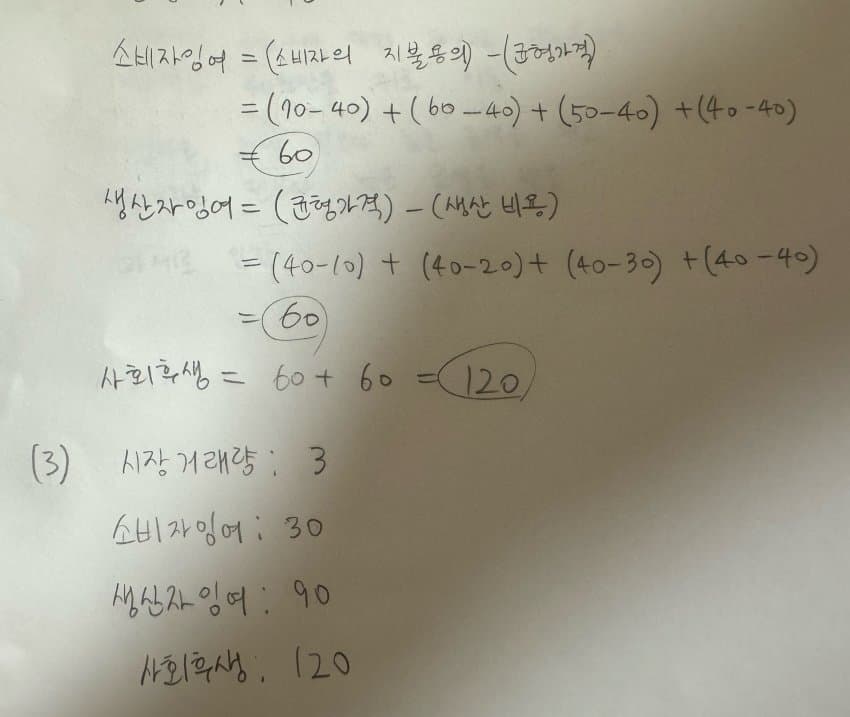 소비자잉여 = (소비자의 지불용의) - (균형가격)
= (70-40) + (60-40) + (50-40) + (40-40)
= 60
생산자잉여 = (균형가격) - (생산비용)
= (40-10) + (40-20) + (40-30) + (40-40)
= 60
사회후생 = 60 + 60 = 120
(3) 시장거래량 : 3
소비자잉여 : 30
생산자잉여 : 90
사회후생 : 120